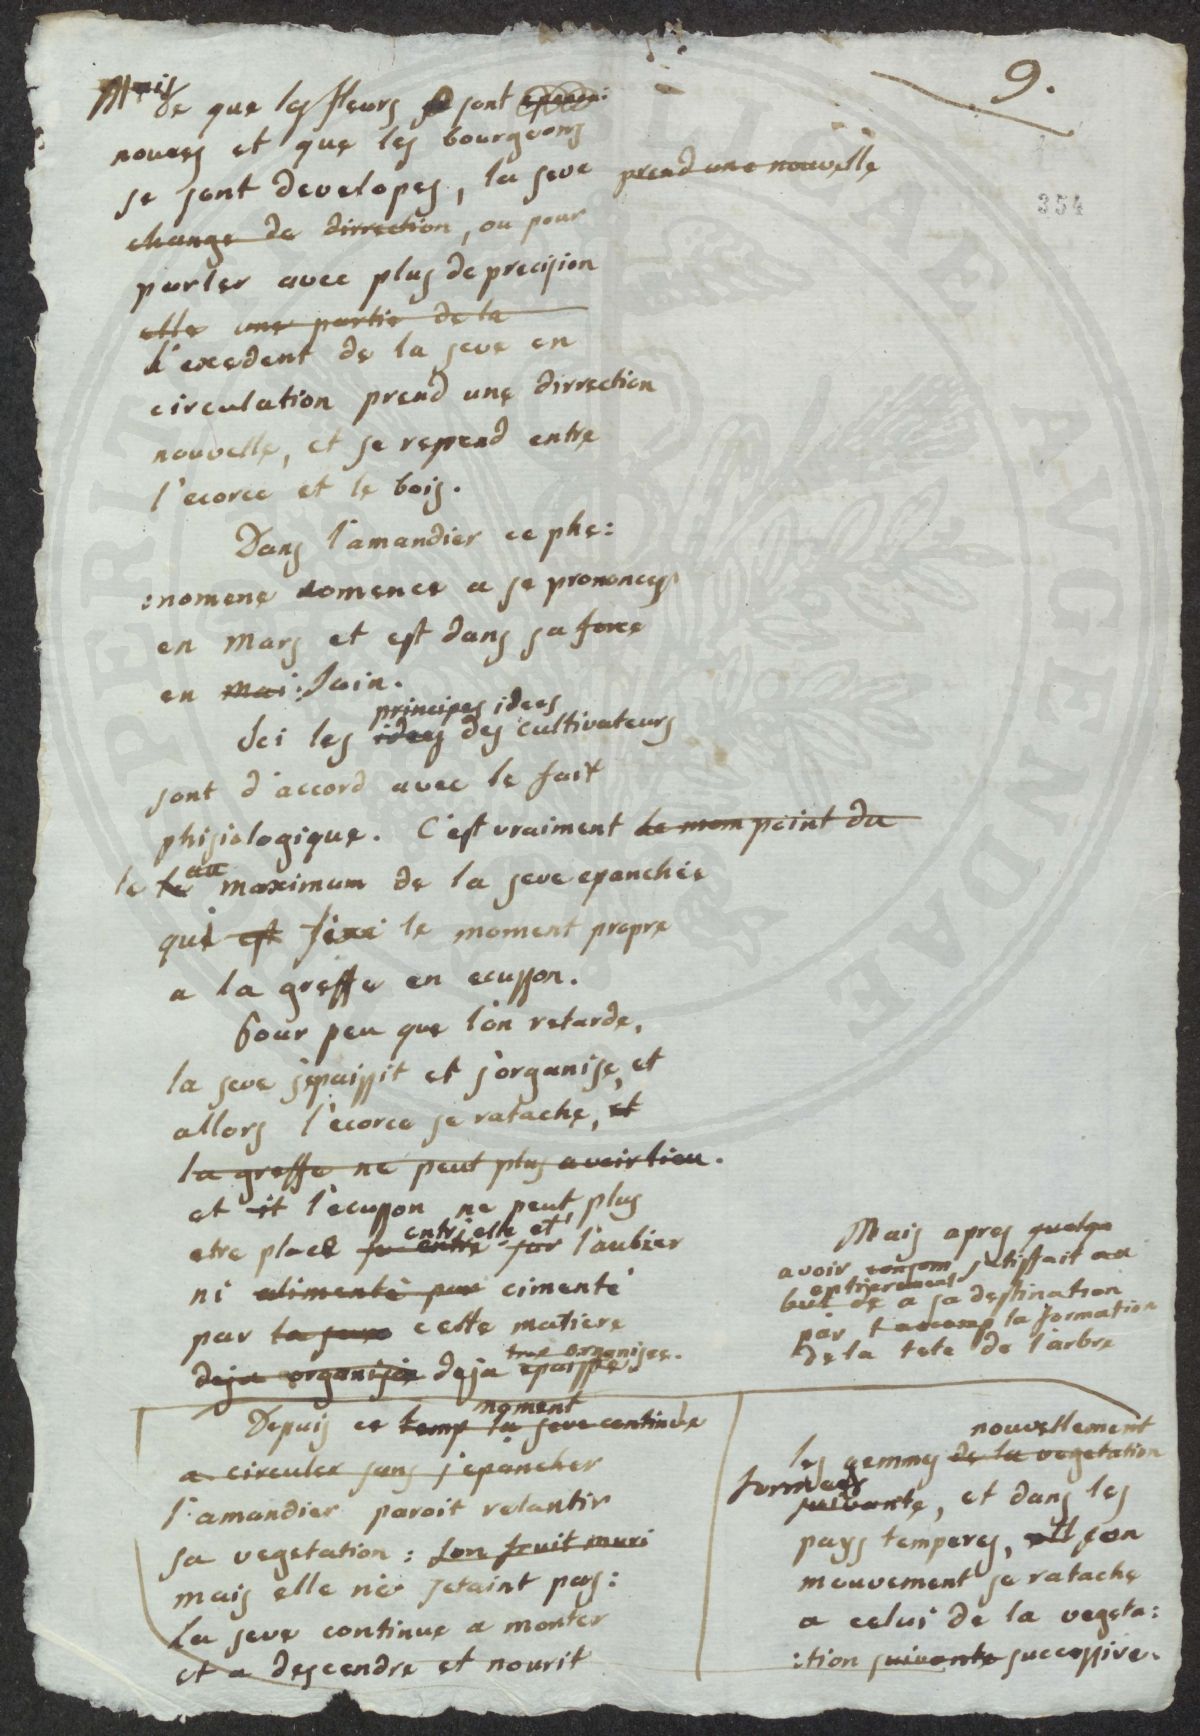 9.
354
Mais
de que les fleurs sont
nouees et que les bourgeons
se sont developes, la seve prend une nouvelle
change de dirrection, ou pour
parler avec plus de precision
elle une partie de la
l'exedent de la seve en
circulation prend une dirrection
nouvelle, et se repend entre
l'ecorce et le bois.
Dans l'amandier ce phe:
:nomene comence a se prononcer
en Mars et est dans sa force
en mai: Juin.
principes idees
Ici les idees des cultivateurs
sont d'accord avec le fait
phisiologique. C'est vraiment le mom point du
au
le le maximum de la seve epanchée
qui est fixe le moment propre
a la greffe en ecusson.
Pour peu que l'on retarde,
la seve s'epaissit et s'organise, et
allors l'ecorce se ratache, et
la greffe ne peut plus avoir lieu.
et l'ecusson ne peut plus
entr'elle et
etre placé entre l'aubier
ni alimenté par cimenté
par la seve cette matiere
trop organisee.
deja organisée deja epaissie
moment
Depuis ce temp la seve continue
a circuler sans s'epancher
l'amandier paroit relantir
sa vegetation: son fruit muri
mais elle ne s'etaint pas:
la seve continue a monter
et a descendre et nourit
Mais apres quelqe
avoir satisffait au
entierement
but de a sa destination
par la formation
de la tete de l'arbre
nouvellement
les gemmes de la vegetation
formées
suivante, et dans les
pays temperes, son
mouvement se ratache
a celui de la vegeta:
:tion suivante successive.